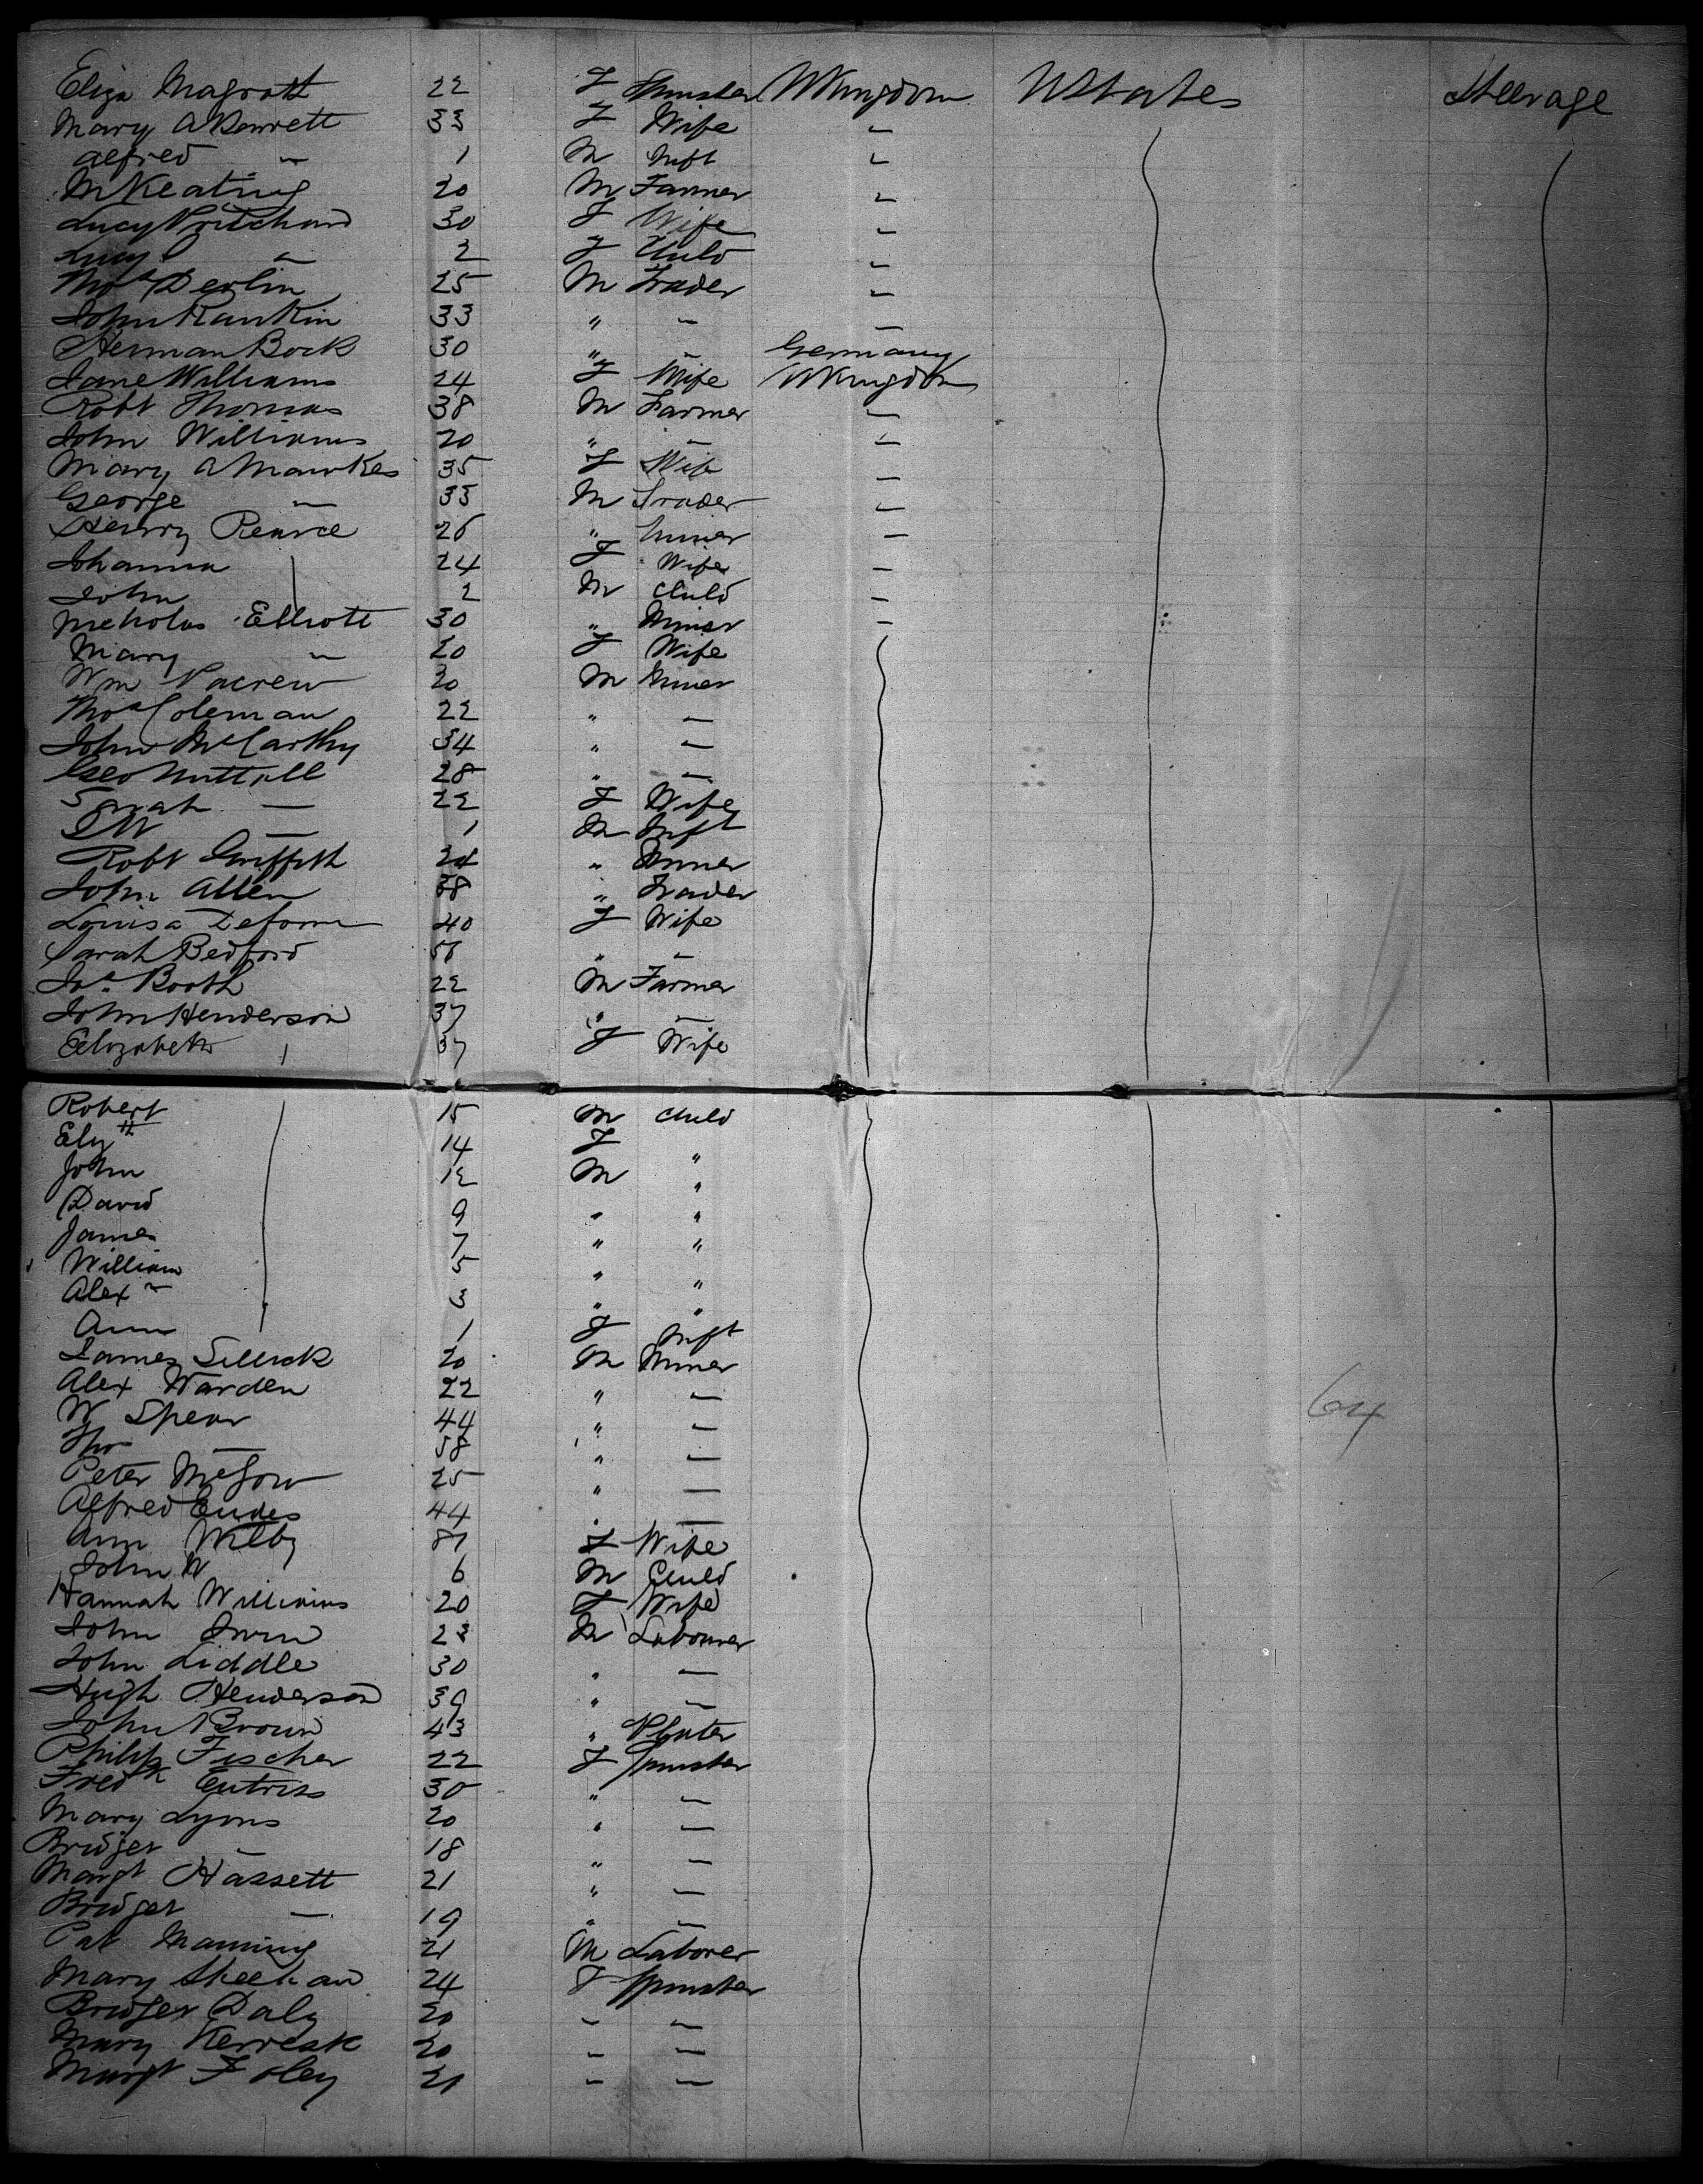 Eliza Magrath 22 F Spinster UKingdom UStates Steerage
Mary A Bennett 33 F Wife "
Alfred " 1 M Inft "
M Keating 20 M Farmer "
Lucy Pritchard 30 F Wife "
Lucy " 2 F Child "
Thos Devlin 25 M Trader "
John Rankin 33 " " "
Herman Bock 30 " " Germany
Jane Williams 24 F Wife UKingdom
Robt Thomas 38 M Farmer "
John Williams 20 " " "
Mary A Mawkes 35 F Wife "
George " 33 M Trader "
Henry Pearce 26 " Miner "
Johanna 24 F Wife "
John 2 M Child "
Nicholas Elliott 30 " Miner "
Mary " 20 F Wife
Wm 20 M Miner
Thos Coleman 22 " "
John McCarthy 34 " "
Geo Nuttall 28 " "
Sarah " 22 F Wife
" 1 M Inft
Robt Griffith 24 " Miner
John Allen 38 " Trader
Louisa 40 F Wife
Sarah Bedford " "
Jas Booth 22 M Farmer
John Henderson 37 " "
Elizabeth 37 F Wife
Robert 15 M Child
Elizth 14 F "
John 12 M "
David 9 " "
James 7 " "
William 5 " "
Alexr 3 " "
Ann 1 F Inft
James Sellick 20 M Miner
Alex Warden 22 " "
W Spear 44 " " 64
Thos " 58 " "
Peter McGow 25 " "
Alfred 44 " "
Ann Wilby F Wife
John W 6 M Child
Hannah Williams 20 F Wife
John Irwin 23 M Labourer
John Liddle 30 " "
Hugh Henderson 39 " "
John Brown 43 "
Philip Fischer 22 F Spinster
Fredk 30 " "
Mary Lyons 20 " "
Bridget " 18 " "
Margt Hassett 21 " "
Bridget " 19 " "
Pat Manning 21 M Laborer
Mary Sheehan 24 F Spinster
Bridget Daly 20 " "
Mary 20 " "
Margt Foley 21 " "